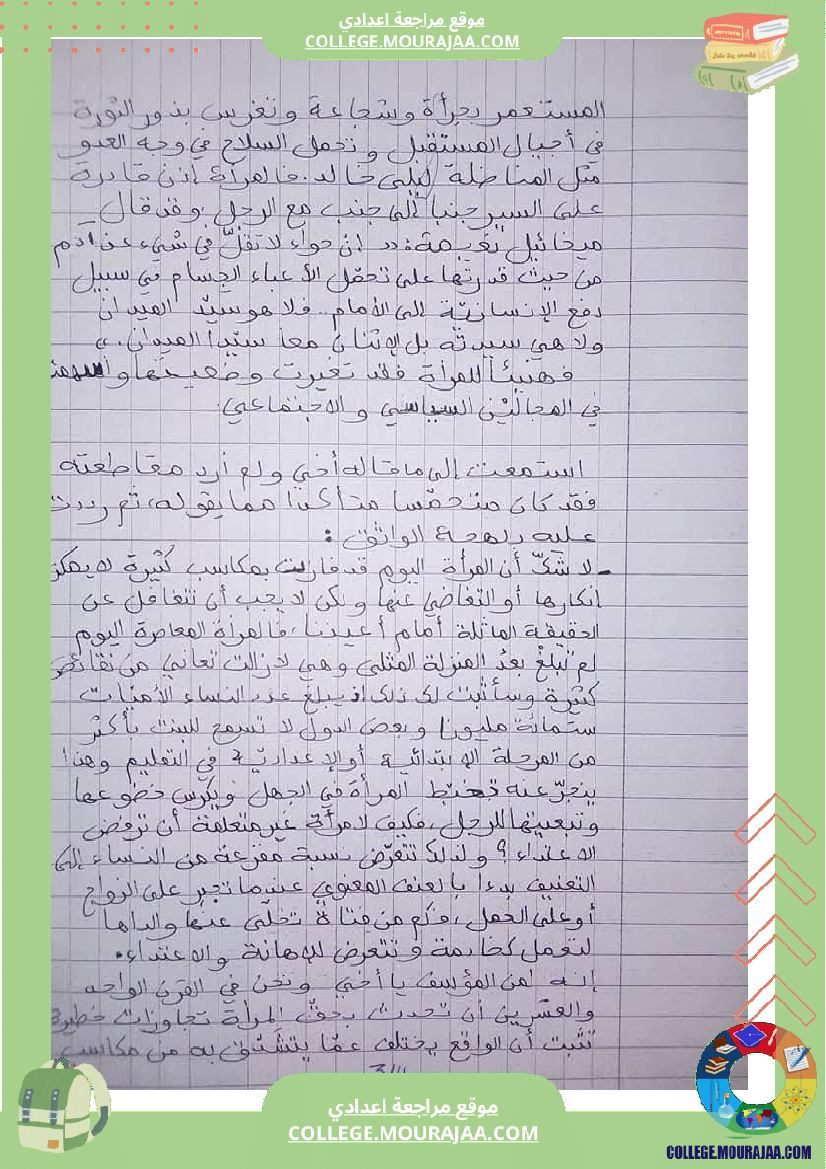 موقع مراجعة اعدادي
COLLEGE.MOURAJAA.COM
المستعمر بجرأة وشجاعة وتغرس بذور الثورة
في أجيال المستقبل وتحمل السلاح في وجه العدو
مثل المناضلة ليلى خالد. فالمرأة إذن قادرة
على السير جنبا إلى جنب مع الرجل وقد قال
ميخائيل نعيمة: << إن حواء لا تقلّ في شيء عن آدم
من حيث قدرتها على تحمّل الأعباء الجسام في سبيل
دفع الإنسانيّة إلى الأمام.. فلا هو سيّد الميدان
ولا هي سيدته بل الإثنان معا سيّدا الميدان. >>
فهنيئا للمرأة فقد تغيرت وضعيتها
في المجاليْن السياسي والاجتماعي.
استمعت إلى ما قاله أخي ولم أرد مقاطعته
فقد كان متحمّسا متأكدا مما يقوله، ثم رددت
عليه بلهجة الواثق :
- لا شكّ أن المرأة اليوم قد فازت بمكاسب كثيرة لا يمكن
إنكارها أو التغاضي عنها ولكن لا يجب أن نتغافل عن
الحقيقة الماثلة أمام أعيننا، فالمرأة المعاصرة اليوم
لم تبلغْ بعدُ المنزلة المثلى وهي لازالت تعاني من نقائص
كثيرة وسأثبت لك ذلك إذ يبلغ عدد النساء الأميات
ستمائة مليون وبعض الدول لا تسمح للبنت بأكثر
من المرحلة الابتدائية أو الإعداديّة في التعليم وهذا
ينجرّ عنه تخبّط المرأة في الجهل ويكرّس خضوعها
وتبعيتها للرجل، فكيف لامرأة غير متعلمة أن ترفض
الاعتداء؟ ولذلك تتعرّض نسبة مفزعة من النساء إلى
التعنيف بدءا بالعنف المعنوي عندما تجبر على الزواج
أو على العمل، فكم من فتاة تخلّى عنها والداها
لتعمل كخادمة وتتعرض للإهانة والاعتداء.
إنه لمن المؤسف يا أخي ونحن في القرن الواحد
والعشرين أن تحدث بحقّ المرأة تجاوزات خطيرة
تثبت أن الواقع يختلف عمّا يتشدّق به من مكاسب
موقع مراجعة اعدادي
COLLEGE.MOURAJAA.COM
COLLEGE.MOURAJAA.COM